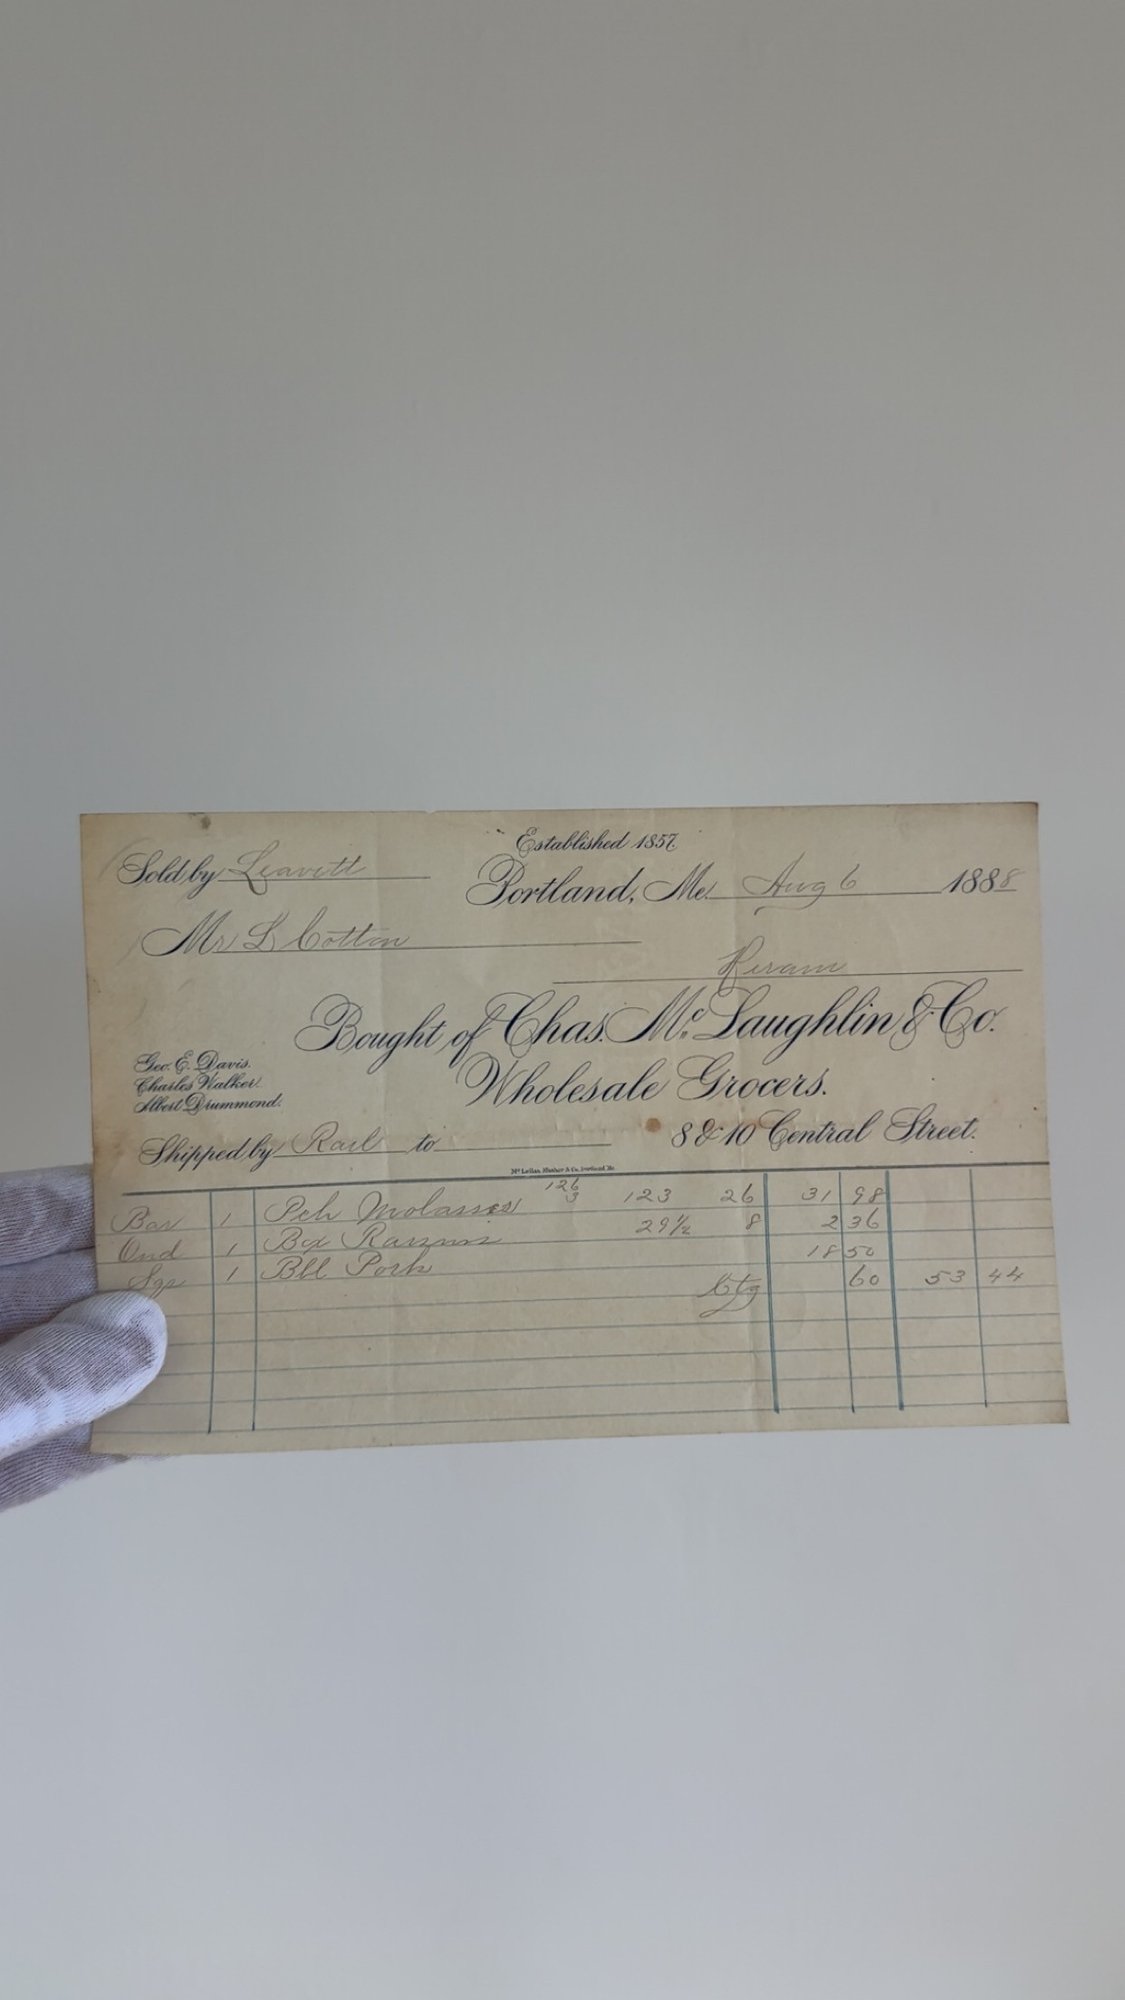 Established 1857.
Sold by Leavitt
Portland, Me. Aug 6 1888
Mr L Cotton
Hiram
Bought of Chas. Mc Laughlin & Co.
Geo. E. Davis.
Charles Walker.
Albert Drummond.
Wholesale Grocers.
Shipped by Rail to
8 & 10 Central Street.
Bar 1 Pch Molasses 126 3 123 26 31 98
Ond 1 Box Raisins 29 1/2 8 2 36
1 Bbl Pork 18 50
Ctg 60 53 44